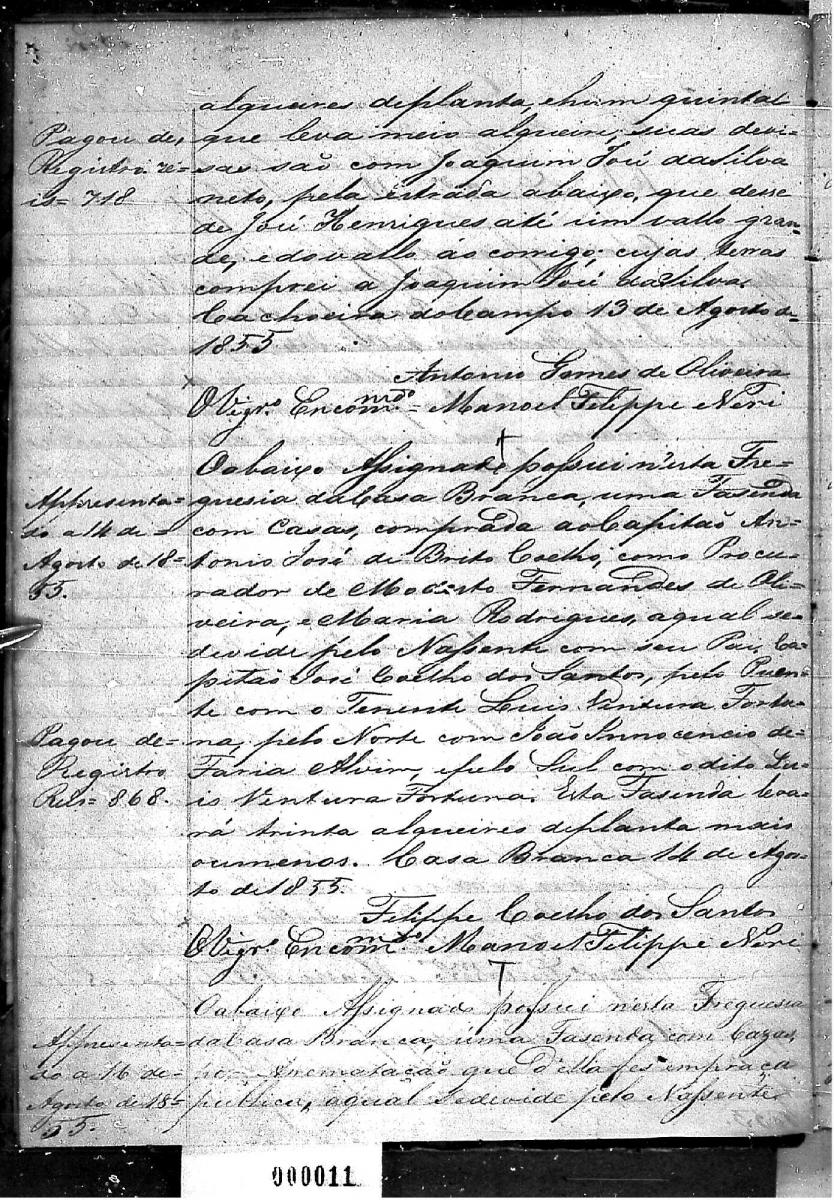 alqueires deplanta, ehum quintal
que leva meio alqueire, suas devi-
sas são com Joaquim José daSilva
neto, pela estrada abaixo, que desse
de José Henriques até um vallo gran-
de, edovallo ao corrigo; cujas terras
comprei a Joaquim José daSilva.
Cachoeira doCampo 13 de Agosto de
1855.
Antonio Gomes de Oliveira
O Vigrº Encommdº Manoel Filippe Neri
Pagou de
Registro re-
is= 718
Oabaixo Assignado possui n'esta Fre-
guesia daCasa Branca, uma Fasenda
com Casas, comprada aoCapitaõ An-
tonio José de Brito Coelho, como Procu-
rador de Modesto Fernandes de Oli-
veira, e Maria Rodrigues, aqual se-
devide pelo Nassente com seu Pai, Ca-
pitaõ José Coelho dos Santos, pelo Puen-
te com o Tenente Luis Ventura Fortu-
na, pelo Norte com João Innocencio de-
Faria Alvim, epelo Sul com odito Lu-
is Ventura Fortuna. Esta Fasenda leva-
rá trinta alqueires deplanta mais
oumenos. Casa Branca 14 de Agos-
to de 1855.
Filippe Coelho dos Santos
O Vigrº Encommdº Manoel Filippe Neri
Appresenta-
do a 14 de-
Agosto de 18-
55.
Pagou de-
Registro
Reis= 868.
Oabaixo Assignado possui n'esta Freguesia
daCasa Branca, uma Fasenda com Cazas,
por- Arrematação que d'ella fes empraça
publica, aqual sedevide pelo Nassente
Appresenta-
do a 16 de-
Agosto de 18-
55.
000011